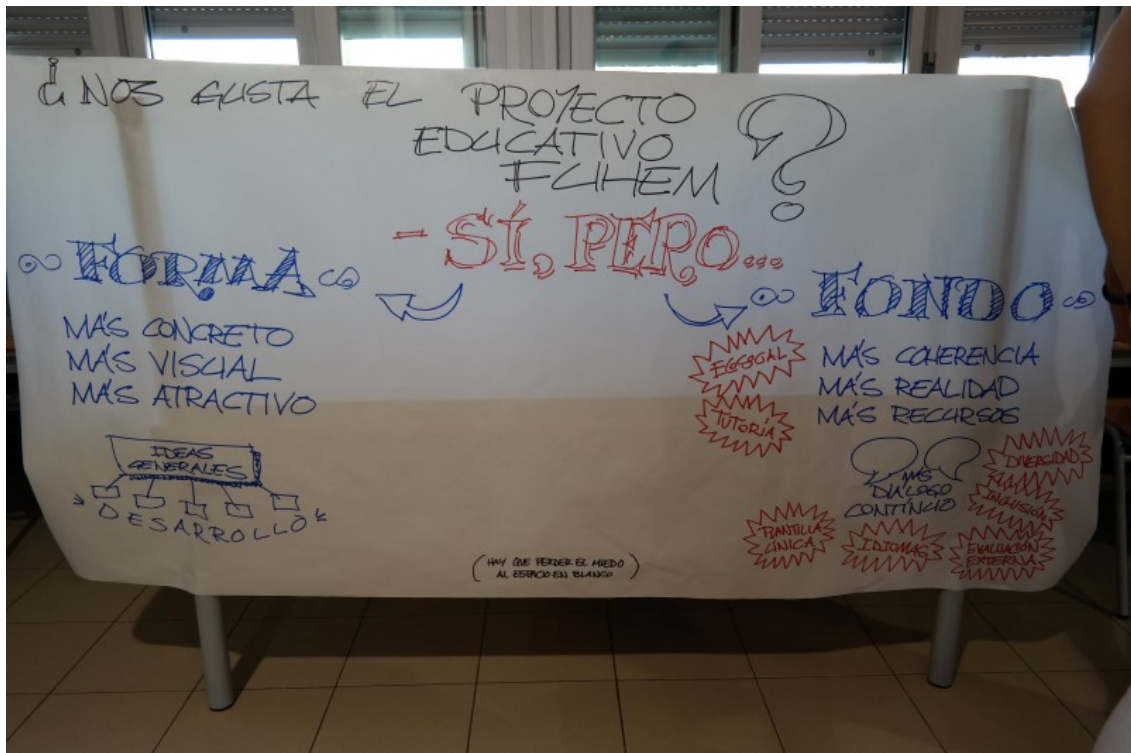 ¿NOS GUSTA EL PROYECTO
EDUCATIVO
FUHEM?
- SÍ, PERO...
FORMA
MÁS CONCRETO
MÁS VISUAL
MÁS ATRACTIVO
IDEAS
GENERALES
DESARROLLO
FONDO
ECOSOCIAL
TUTORÍA
MÁS COHERENCIA
MÁS REALIDAD
MÁS RECURSOS
MÁS
DIÁLOGO
CONTINUO
DIVERSIDAD
INCLUSIÓN
PLANTILLA
ÚNICA
IDIOMAS
EVALUACIÓN
EXTERNA
(HAY QUE PERDER EL MIEDO
AL ESPACIO EN BLANCO)